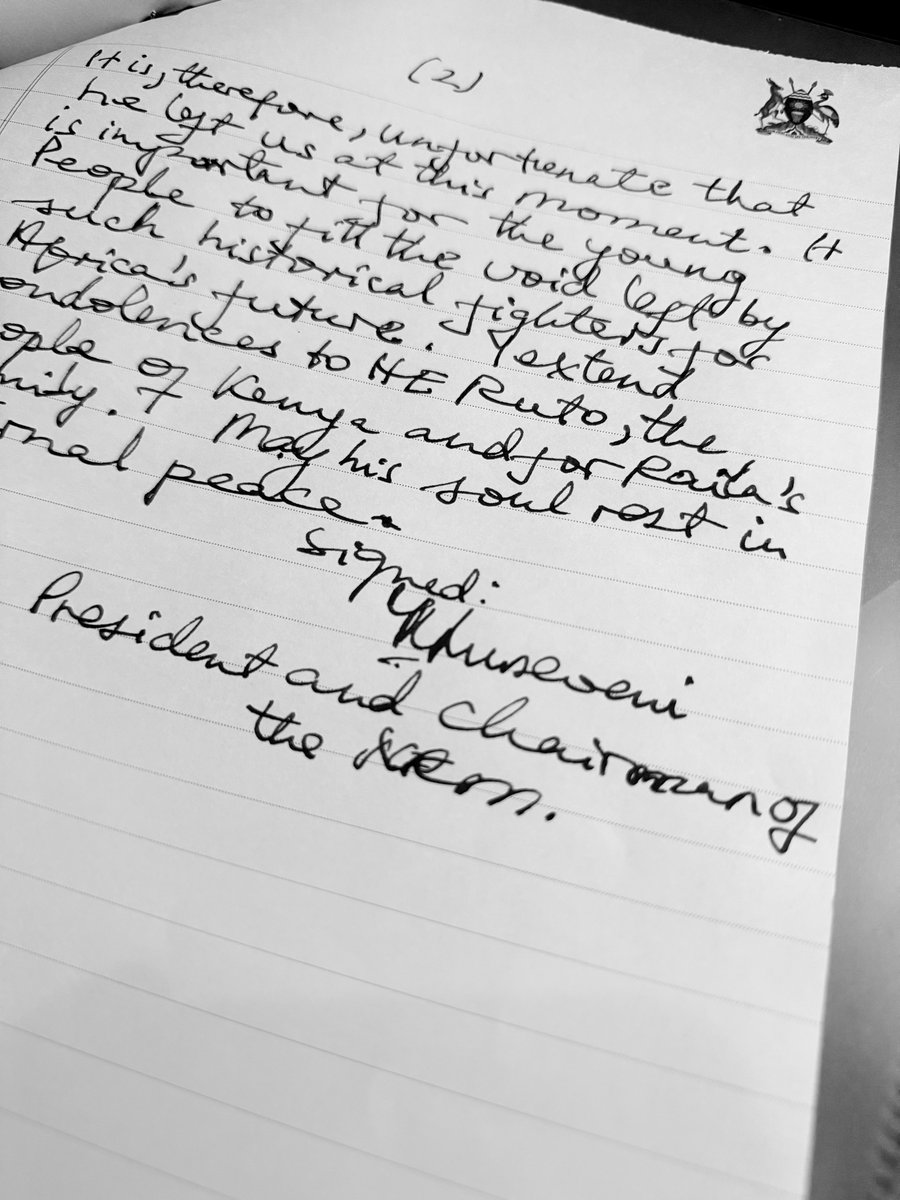 (2)
It is, therefore, unfortunate that
he left us at this moment. It
is important for the young
People to fill the void left by
such historical fighters for
Africa's future. I extend
ondolences to HE Ruto, the
ople of Kenya and for Raila's
mily. May his soul rest in
rnal peace.
Signed:
Museveni
President and Chairman of
the NRM.